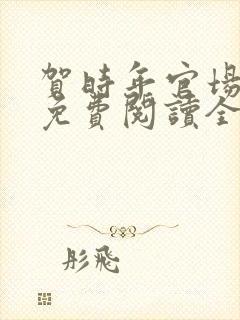 賀時年官場
免費閱讀全
彤飛